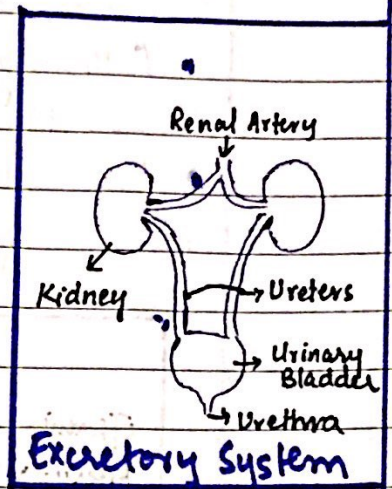 Renal Artery
Kidney
Ureters
Urinary
Bladder
Urethra
Excretory System